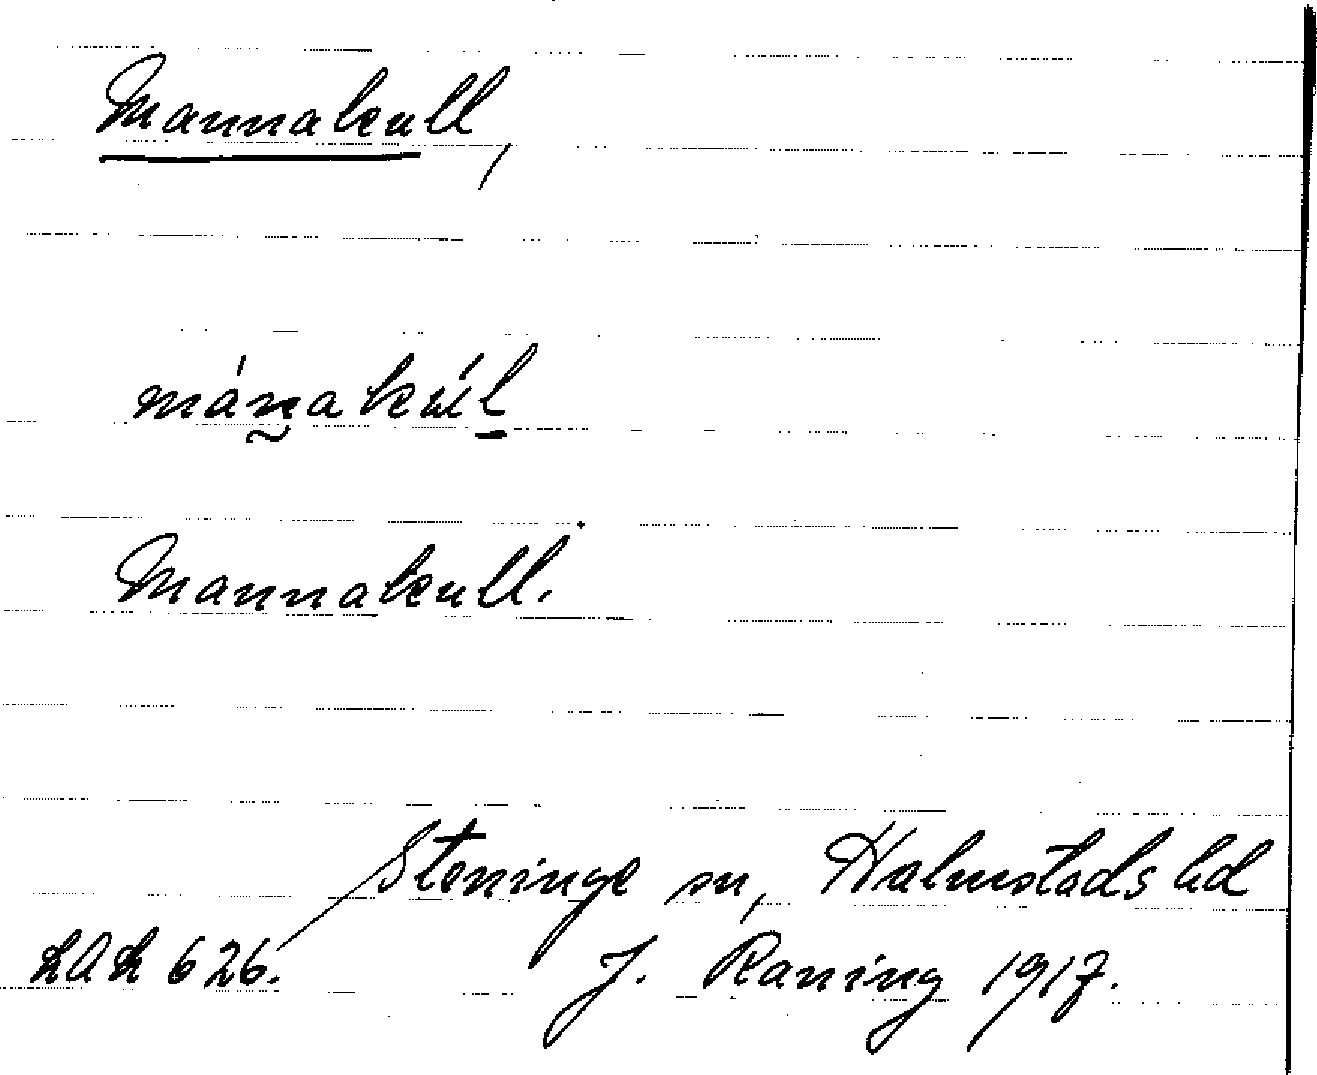 Mannakull,
mánakúl
Mannakull.
Steninge sn, Halmstads hd
LAL 626. J. Raning 1917.